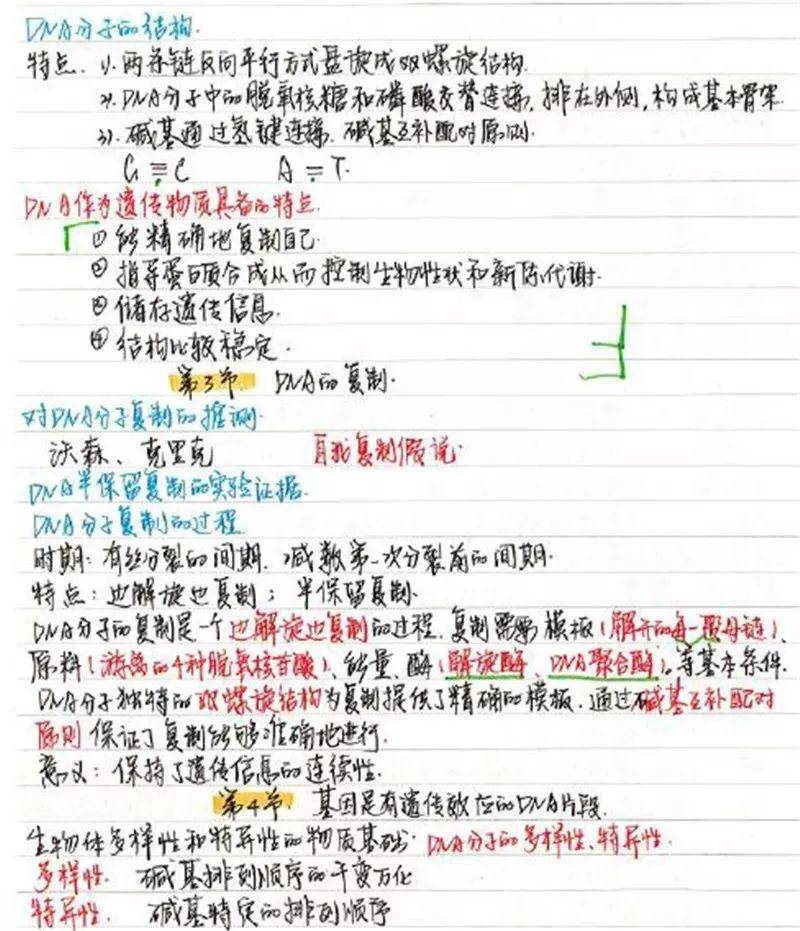 DNA分子的结构.
特点. 1). 两条链反向平行方式盘旋成双螺旋结构.
2). DNA分子中的脱氧核糖和磷酸交替连接, 排在外侧, 构成基本骨架
3). 碱基通过氢键连接. 碱基互补配对原则.
G≡C A=T.
DNA作为遗传物质具备的特点.
① 能精确地复制自己.
② 指导蛋白质合成从而控制生物性状和新陈代谢.
③ 储存遗传信息.
④ 结构比较稳定.
第3节 DNA的复制.
对DNA分子复制的推测.
沃森、克里克 自我复制假说.
DNA半保留复制的实验证据.
DNA分子复制的过程.
时期: 有丝分裂的间期. 减数第一次分裂前的间期.
特点: 边解旋边复制; 半保留复制.
DNA分子的复制是一个边解旋边复制的过程. 复制需要模板(解开的每一股母链)、
原料(游离的4种脱氧核苷酸)、能量、酶(解旋酶、DNA聚合酶)。等基本条件.
DNA分子独特的双螺旋结构为复制提供了精确的模板. 通过碱基互补配对
原则保证了复制能够准确地进行.
意义: 保持了遗传信息的连续性.
第4节. 基因是有遗传效应的DNA片段.
生物体多样性和特异性的物质基础: DNA分子的多样性、特异性.
多样性. 碱基排列顺序的千变万化
特异性. 碱基特定的排列顺序